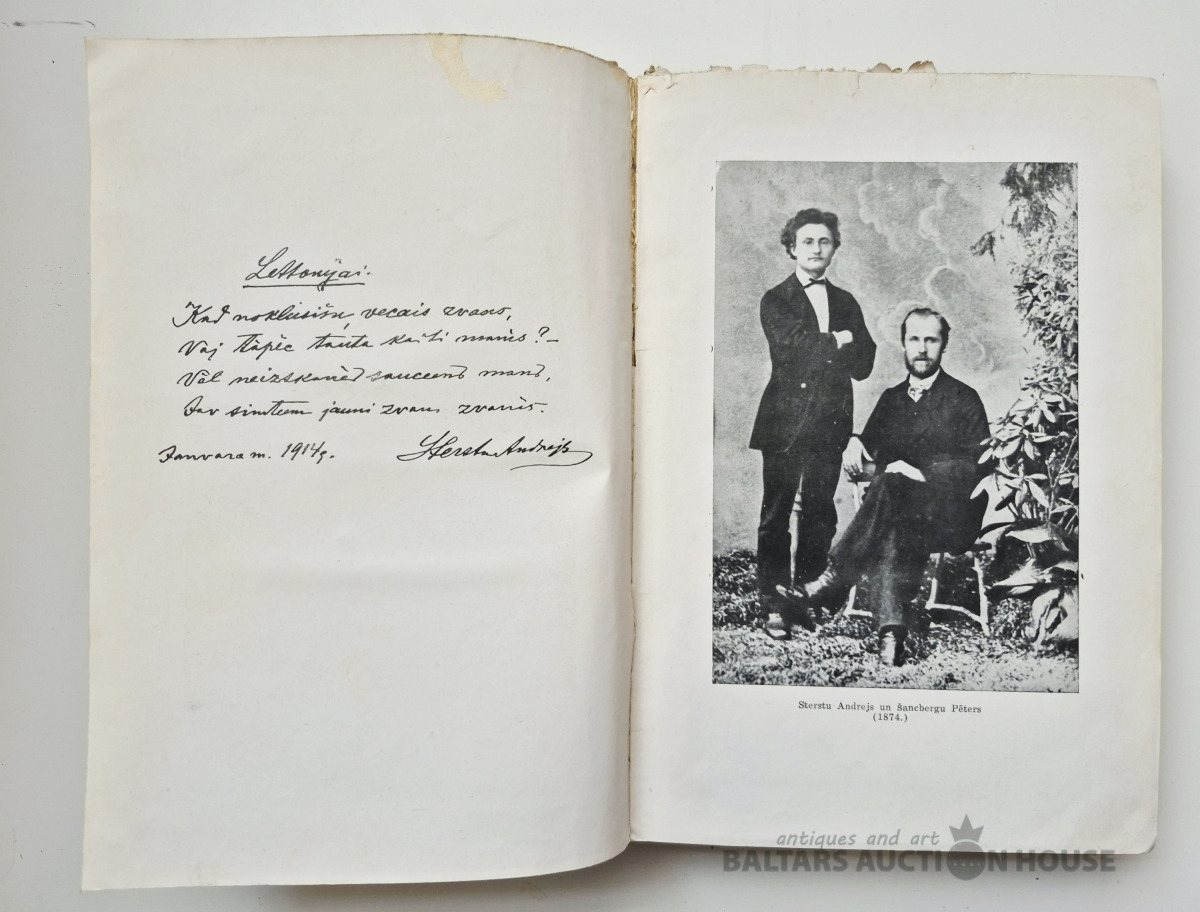 Lettonijai.
Kad noklusīšu, vecais zvans,
Vaj tāpēc tauta kaiti manis? –
Vēl neizskanēs sauceens mans,
Jav simteem jauni zvani zvanīs.
Janvara m. 1914 g. Sterstu Andrejs
Sterstu Andrejs un Šancbergu Pēters
(1874.)
antiques and art
BALTARS AUCTION HOUSE